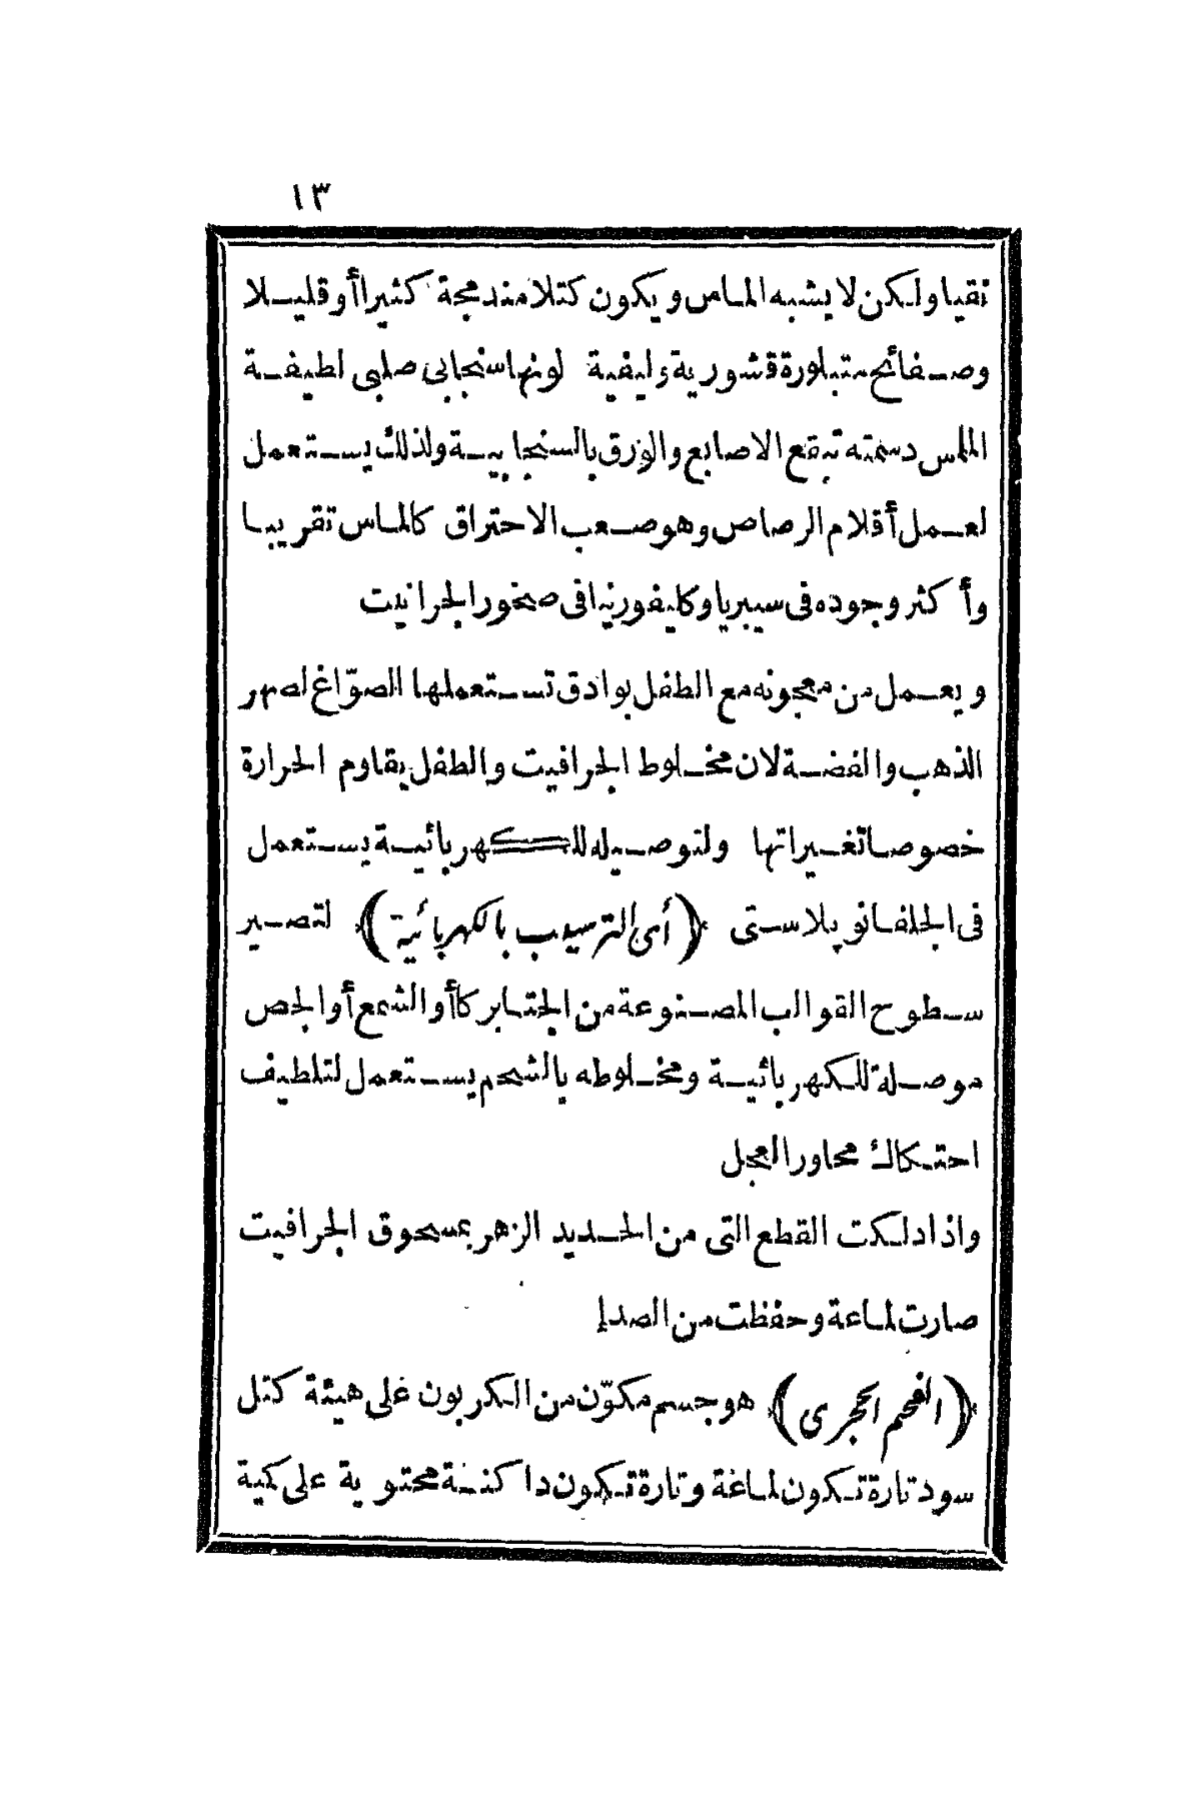 ١٣
نقيا ولكن لا يشبه الماس ويكون كتلا مندمجة كثيرا أو قليلا
وصفائح متبلورة قشورية وليفية لونها سنجابى صلبى لطيفة
الملمس دسمته تبقع الاصابع والورق بالسنجابية ولذلك يستعمل
لعمل أقلام الرصاص وهو صعب الاحتراق كالماس تقريبا
وأكثر وجوده فى سيبريا وكليفورنيا فى صخور الجرانيت
ويعمل من معجونه مع الطفل بوادق تستعملها الصوّاغ لصهر
الذهب والفضة لان مخلوط الجرافيت والطفل يقاوم الحرارة
خصوصا تغيراتها ولتوصيله للكهربائية يستعمل
فى الجلفانو پلاستى ﴿أى الترسيب بالكهربائية﴾ لتصير
سطوح القوالب المصنوعة من الجتابركا أو الشمع أو الجص
موصلة للكهربائية ومخلوطه بالشحم يستعمل لتلطيف
احتكاك محاور العجل
واذا دلكت القطع التى من الحديد الزهر بمسحوق الجرافيت
صارت لماعة وحفظت من الصدإ
﴿الفحم الحجرى﴾ هو جسم مكوّن من الكربون على هيئة كتل
سود تارة تكون لماعة وتارة تكون داكنة محتوية على كمية